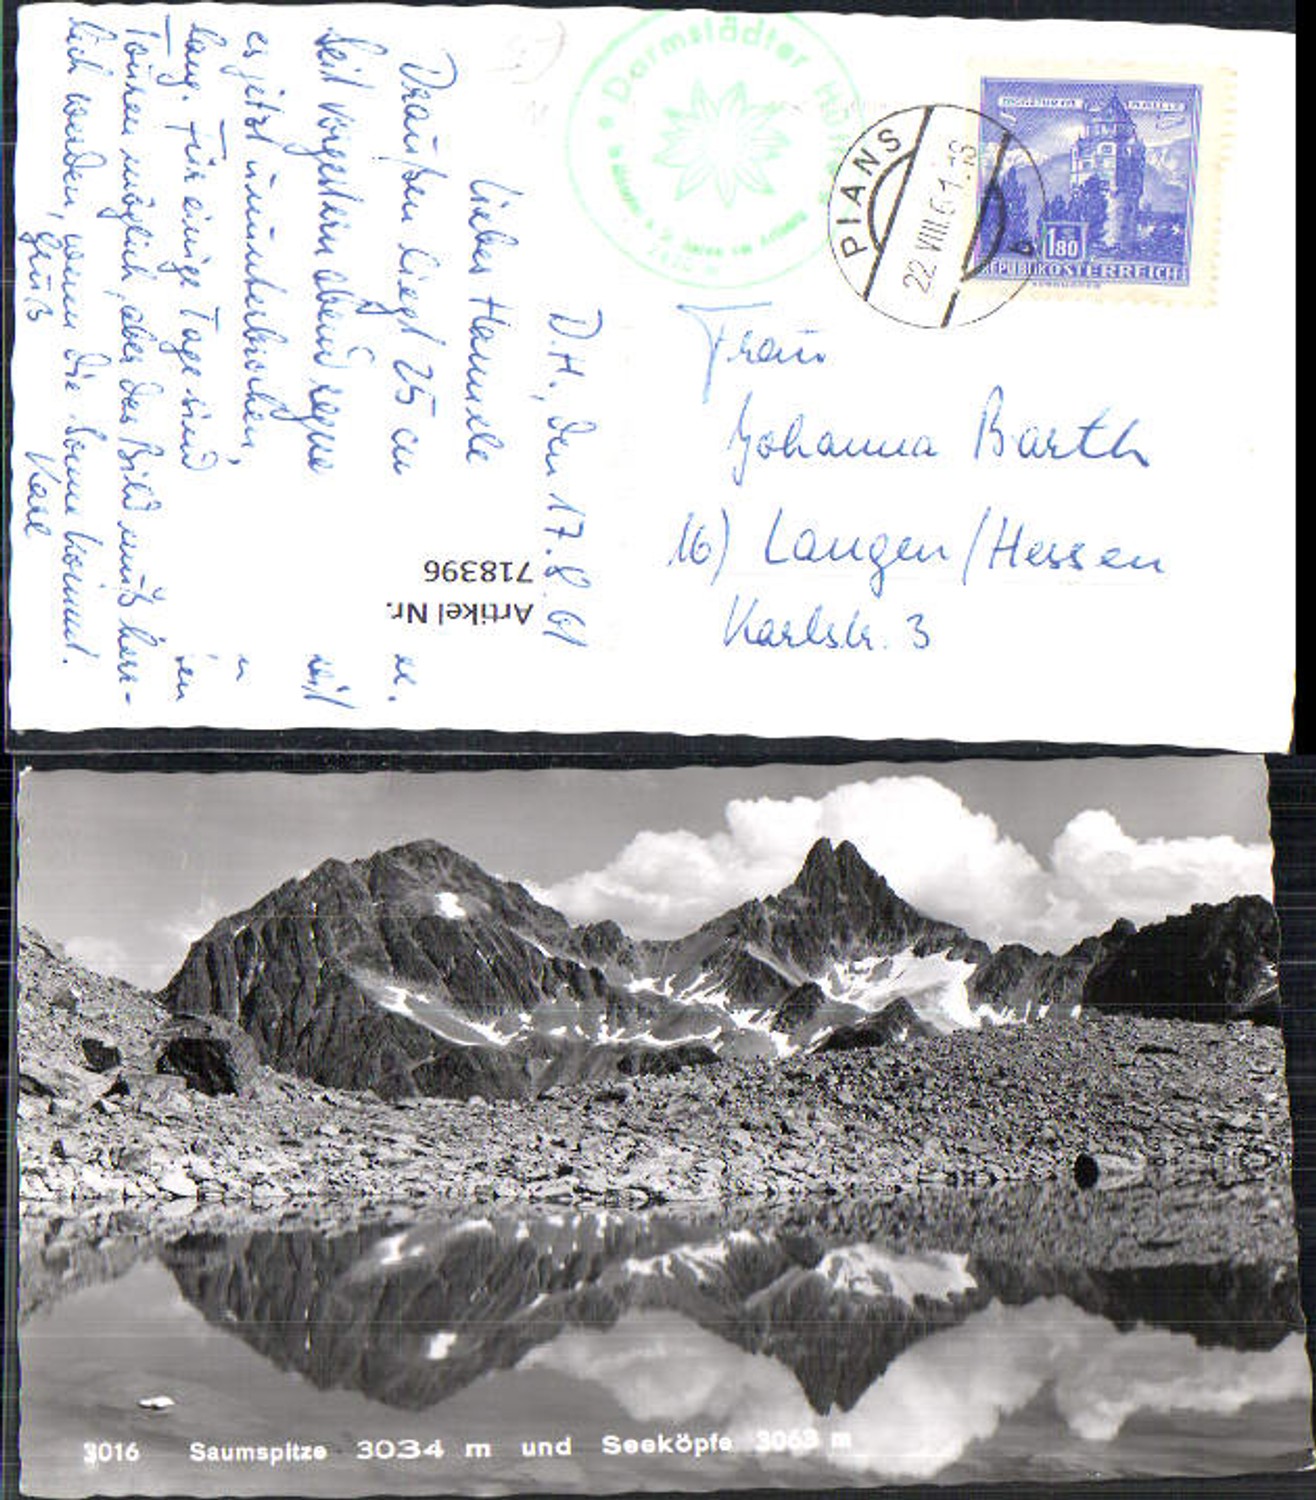 D.H., den 17.8.61
Liebes Hannele
Draußen liegt 25 cm
Seit vorgestern abend regne
es jetzt ununterbrochen,
lang. Für einige Tage sind
Touren möglich, aber das Bild muß herr-
lich werden, wenn die Sonne kommt.
Gruß Karl
Artikel Nr.
718396
Darmstädter Hütte
PIANS
22.VIII.61.-18
b
1.80
REPUBLIK ÖSTERREICH
Frau
Johanna Barth
16) Langen/Hessen
Karlstr. 3
3016 Saumspitze 3034 m und Seeköpfe 3063 m